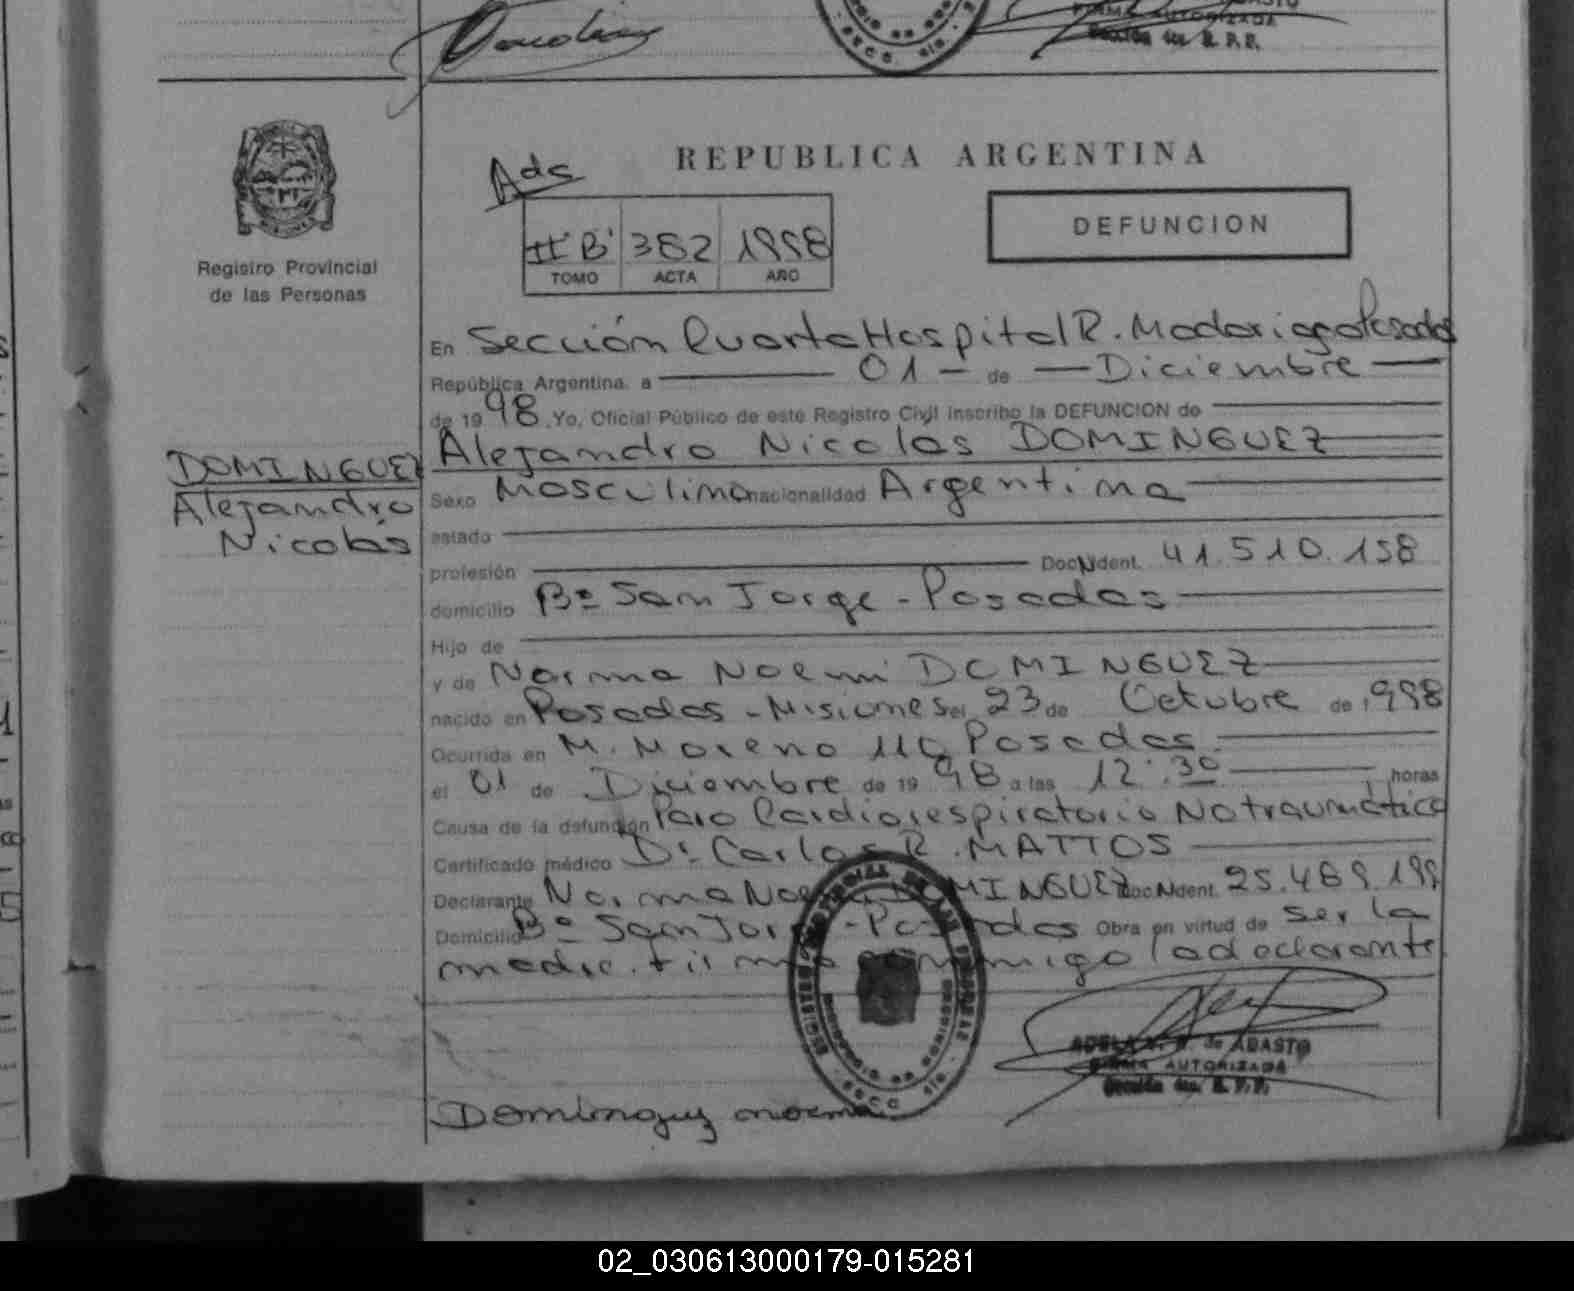 FIRMA AUTORIZADA
REPUBLICA ARGENTINA
Ads
DEFUNCION
II'B' 382 1998
TOMO ACTA AÑO
Registro Provincial
de las Personas
En Sección Cuarta Hospital R. Madariaga Posadas
República Argentina. a 01 - de Diciembre
de 1998. Yo, Oficial Público de este Registro Civil inscribo la DEFUNCION de
Alejandro Nicolas DOMINGUEZ
DOMINGUEZ
Alejandro
Nicolás
Sexo Masculino nacionalidad Argentina
estado
profesión Doc. Ident. 41.510.158
domicilio Bº San Jorge - Posadas
Hijo de
y de Norma Noemi DOMINGUEZ
nacido en Posadas - Misiones el 23 de Octubre de 1998
Ocurrida en M. Moreno 110 Posadas.
el 01 de Diciembre de 1998 a las 12:30 horas
Causa de la defunción Paro Cardiorespiratorio No traumático
Certificado médico Dr. Carlos R. MATTOS
Declarante Norma Noemi DOMINGUEZ Doc. Ident. 25.489.199
Domicilio Bº San Jorge - Posadas Obra en virtud de ser la
madre. firma conmigo la declarante
ADELA de ABASTO
FIRMA AUTORIZADA
R. P. P.
Dominguez norma
02_030613000179-015281